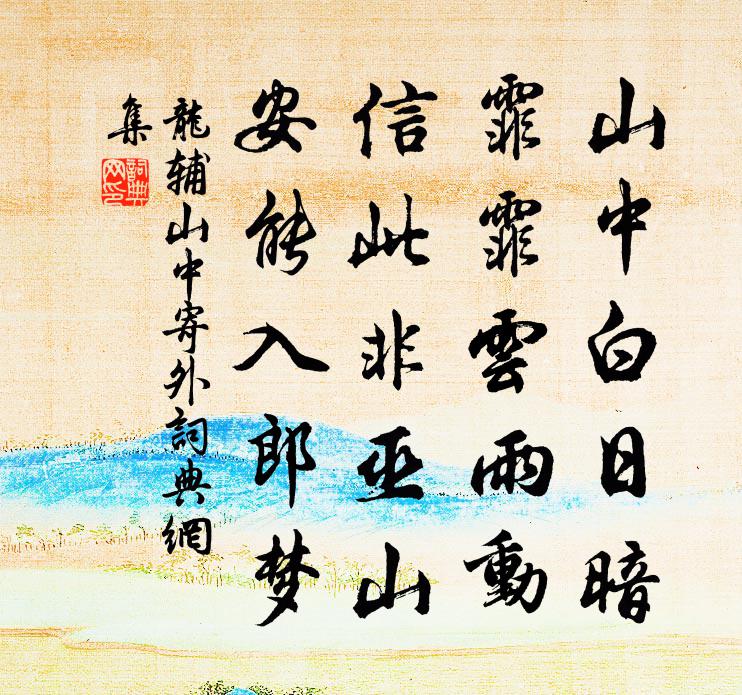 山中白日暗
霏霏雲雨動
信此非巫山
安能入郎梦
龍輔山中寄外詞典網
集
詞典网印